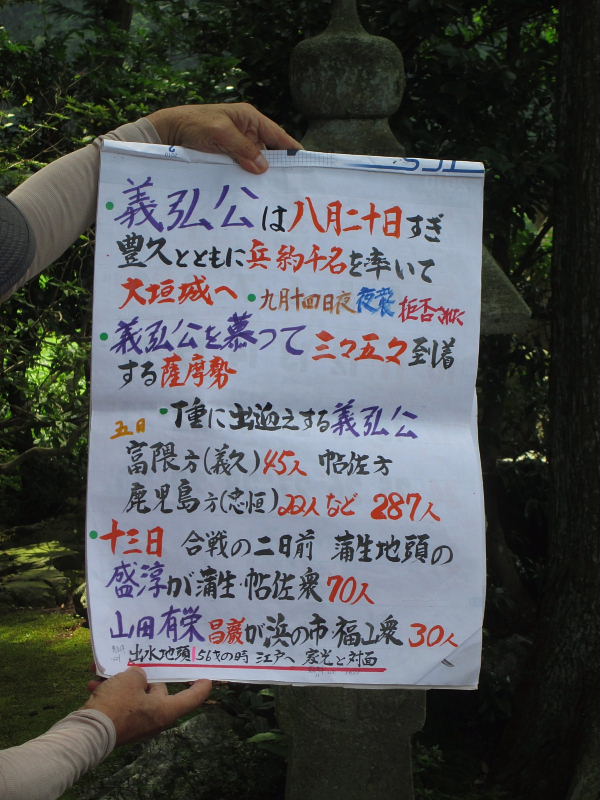 義弘公は八月二十日すぎ
豊久とともに兵約千名を率いて
大垣城へ ・九月十四日夜 夜襲 拒否
・義弘公を慕って 三々五々 到着
する薩摩勢
五日 ・丁重に出迎えする義弘公
富隈方(義久)45人 帖佐方
鹿児島方(忠恒)22人など 287人
・十三日 合戦の二日前 蒲生地頭の
盛淳が蒲生・帖佐衆70人
山田有栄 昌巌が浜の市・福山衆 30人
出水地頭 56才の時 江戸へ 家光と対面